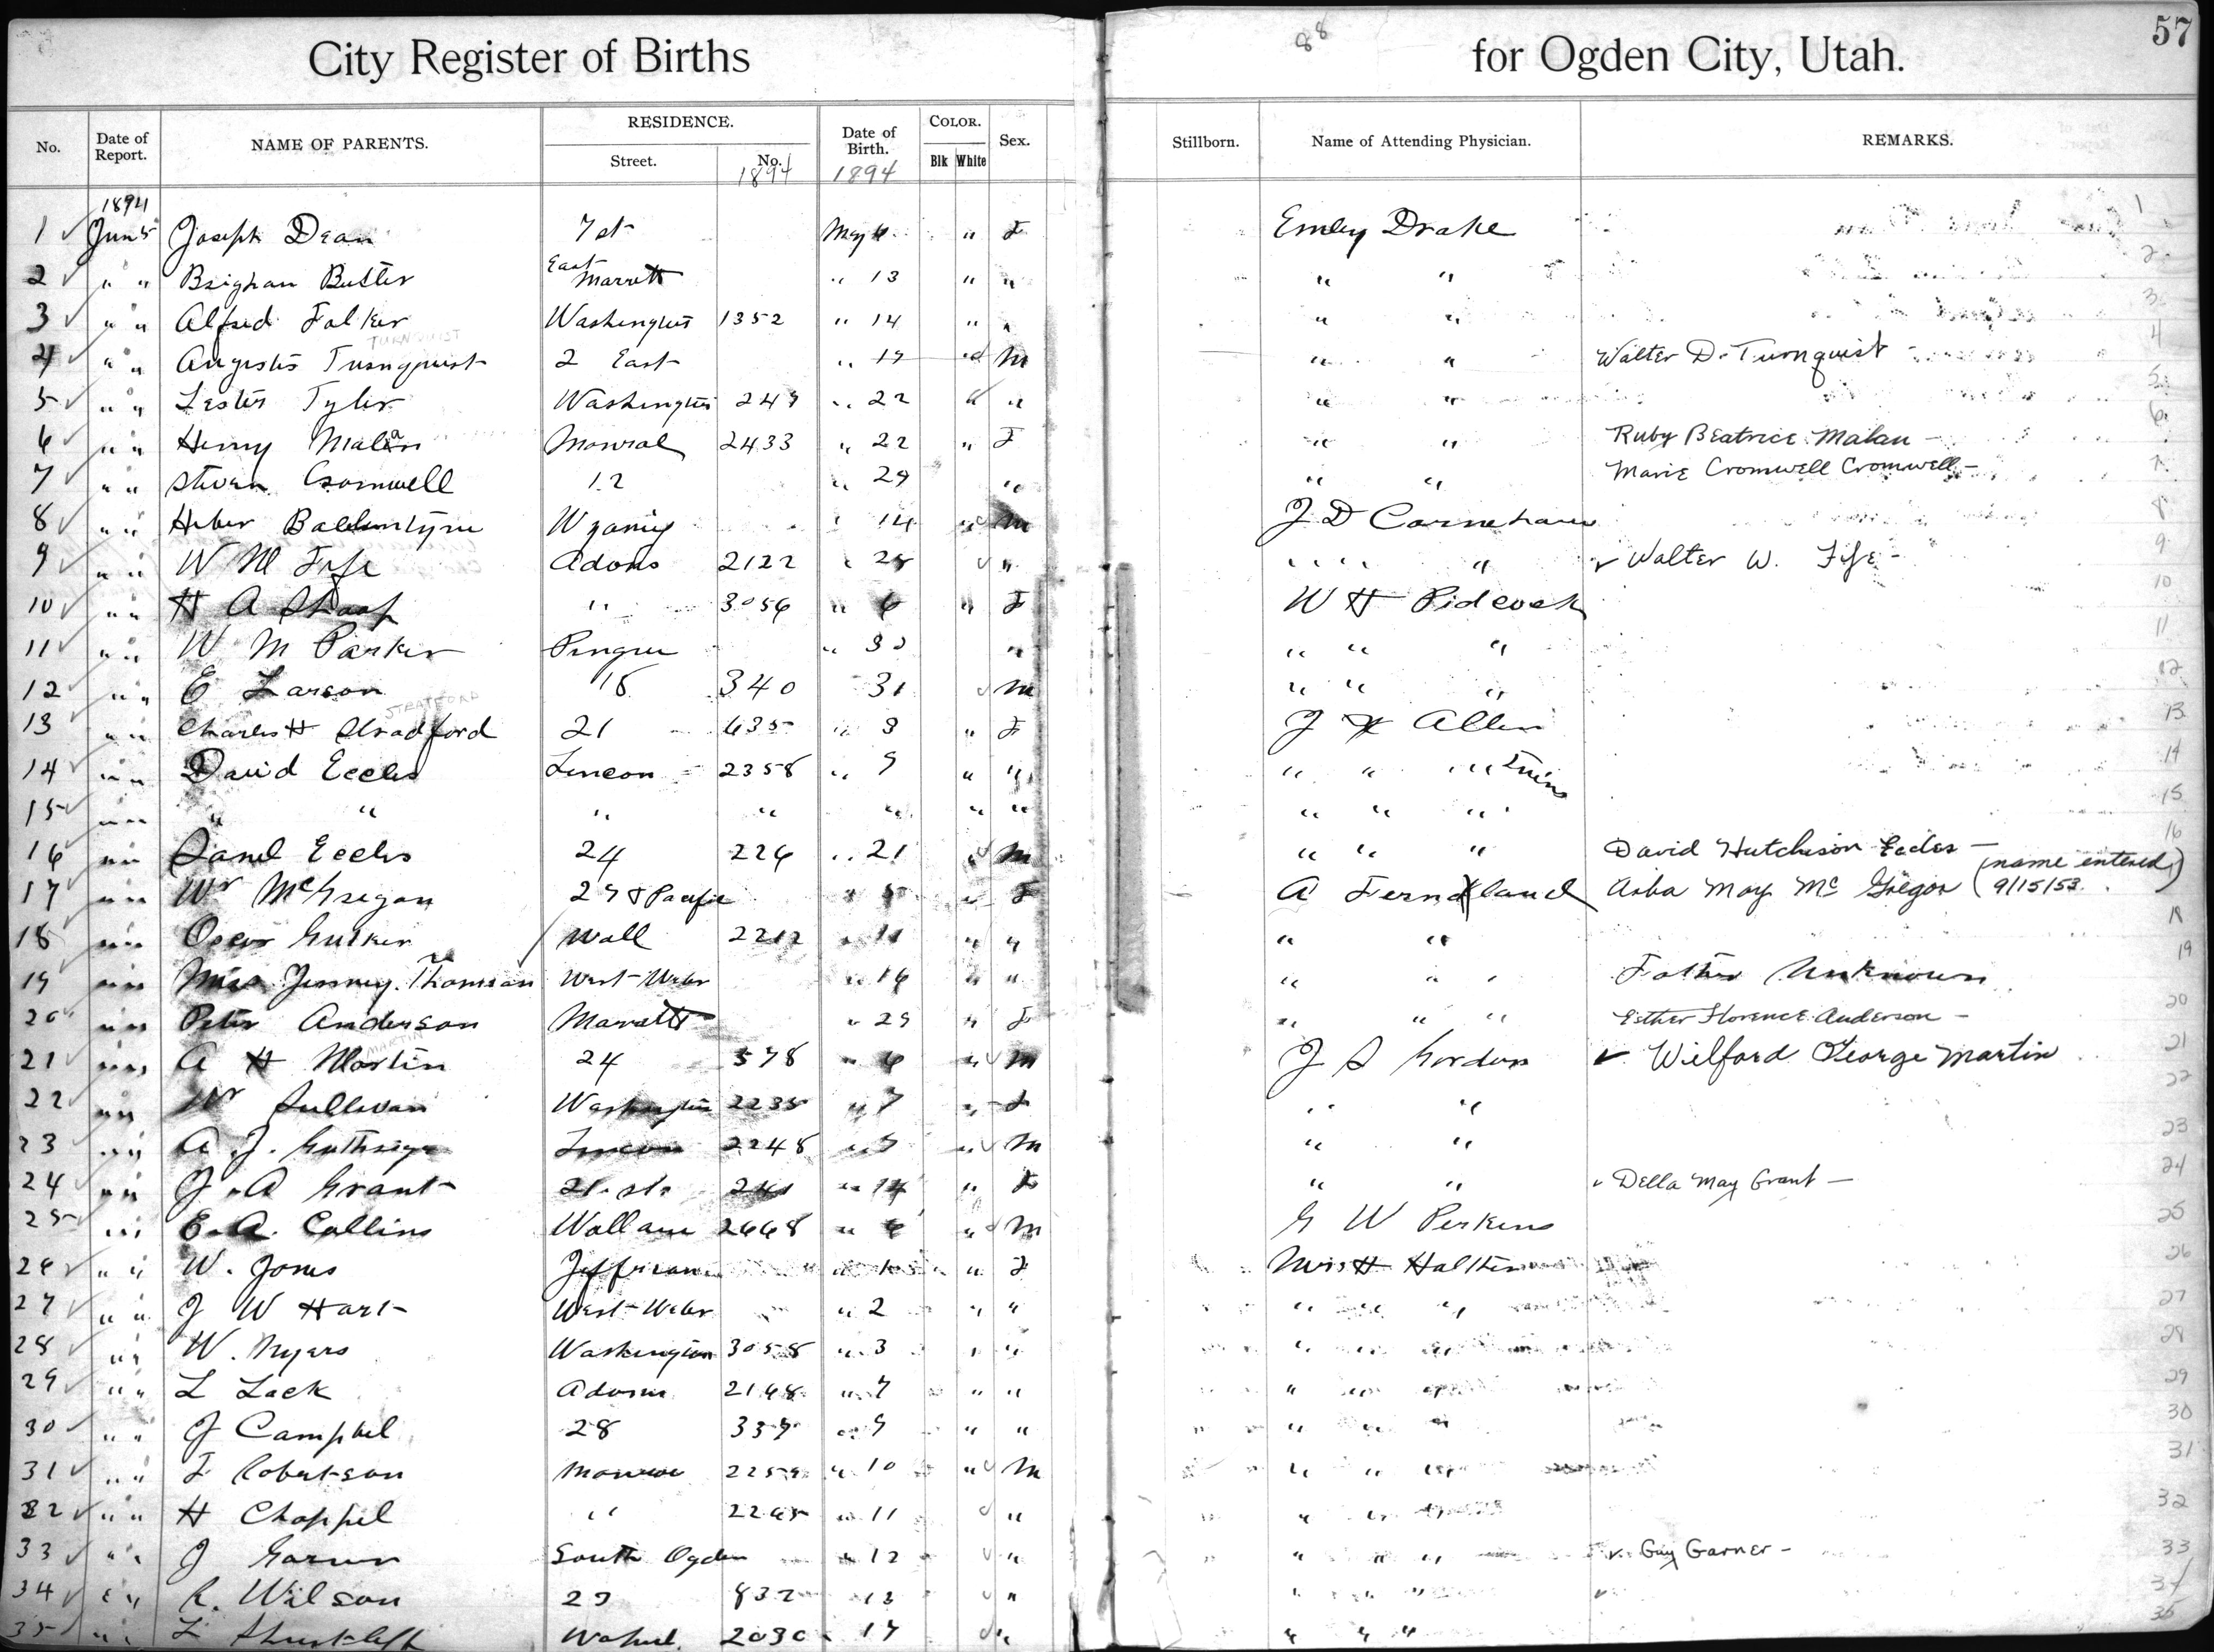 57
88
City Register of Births for Ogden City, Utah.
No. Date of Report. NAME OF PARENTS. RESIDENCE. Street. No. Date of Birth. COLOR. Blk White Sex. Stillborn. Name of Attending Physician. REMARKS.
1894 1894 1894
1 Jun 5 Joseph Dean 7 st May 6 " F Emley Drake 1
2 " " Brigham Butler East Marrott " 13 " " " " 2
3 " " Alfred Folker Washington 1352 " 14 " " " " 3
TURNQUIST
4 " " Augustus Turnquist 2 East " 19 " M " " Walter D. Turnquist - 4
5 " " Lester Tyler Washington 249 " 22 " " " " 5
6 " " Henry Malan Monroe 2433 " 22 " F " " Ruby Beatrice Malan - 6
7 " " Steven Cromwell 12 " 29 " " " Marie Cromwell Cromwell - 7
8 " " Heber Ballantyne Wyoming " 14 " M J D Carnahan 8
9 " " W M Fife Adams 2122 " 28 " " " " Walter W. Fife - 9
10 " " H A Shoop " 3056 " 6 " F W H Pidcock 10
11 " " W M Parker Pingree " 30 " " " " 11
12 " " E Larson 18 340 31 M " " " 12
STRATFORD
13 " " Charles H Stradford 21 635 " 3 " F J X Allen 13
14 " " David Eccles Lincon 2358 " 9 " " " " " Twins 14
15 " " " " " " " " " " " " 15
16 " " David Eccles 24 226 " 21 " M " " " David Hutchison Eccles - 16
17 " " Wm McGregor 29 & Pacific " 5 " F A Ferndland Arba May McGregor (name entered 9/15/53.)
18 " " Oscar Guiker Wall 2212 " 11 " " " " 18
19 " " Miss Jenney Thomson West Weber " 16 " " " " " Father Unknown 19
20 " " Peter Anderson Marrott " 29 " F " " " Esther Florence Anderson - 20
MARTIN
21 " " A H Martin 24 578 " 6 " M J S Gordon Wilford George Martin 21
22 " " Wm Sullivan Washington 2235 " 7 " F " " 22
23 " " A. J. Guthrige Lincon 2248 " 9 " M " " 23
24 " " J. A Grant 21. st. 241 " 14 " F " " Della May Grant - 24
25 " " E. A. Collins Wallace 2668 " 6 " M G W Perkins 25
26 " " W. Jones Jefferson " 1 " F Mrs H Halther 26
27 " " J W Hart West Weber " 2 " " " " " 27
28 " " W. Myers Washington 3058 " 3 " " " " " 28
29 " " L Lack Adams 2168 " 7 " " " " " 29
30 " " J Campbel 28 339 " 9 " " " " " 30
31 " " L Robertson Monroe 2259 " 10 " M " " " 31
32 " " H Chappel " 2265 " 11 " " " " 32
33 " " J Garner South Ogden " 12 " " " " Guy Garner - 33
34 " " R. Wilson 27 832 13 " " " " 34
35 " " L Shurtleff Wahul. 2030 " 17 " " " " 35